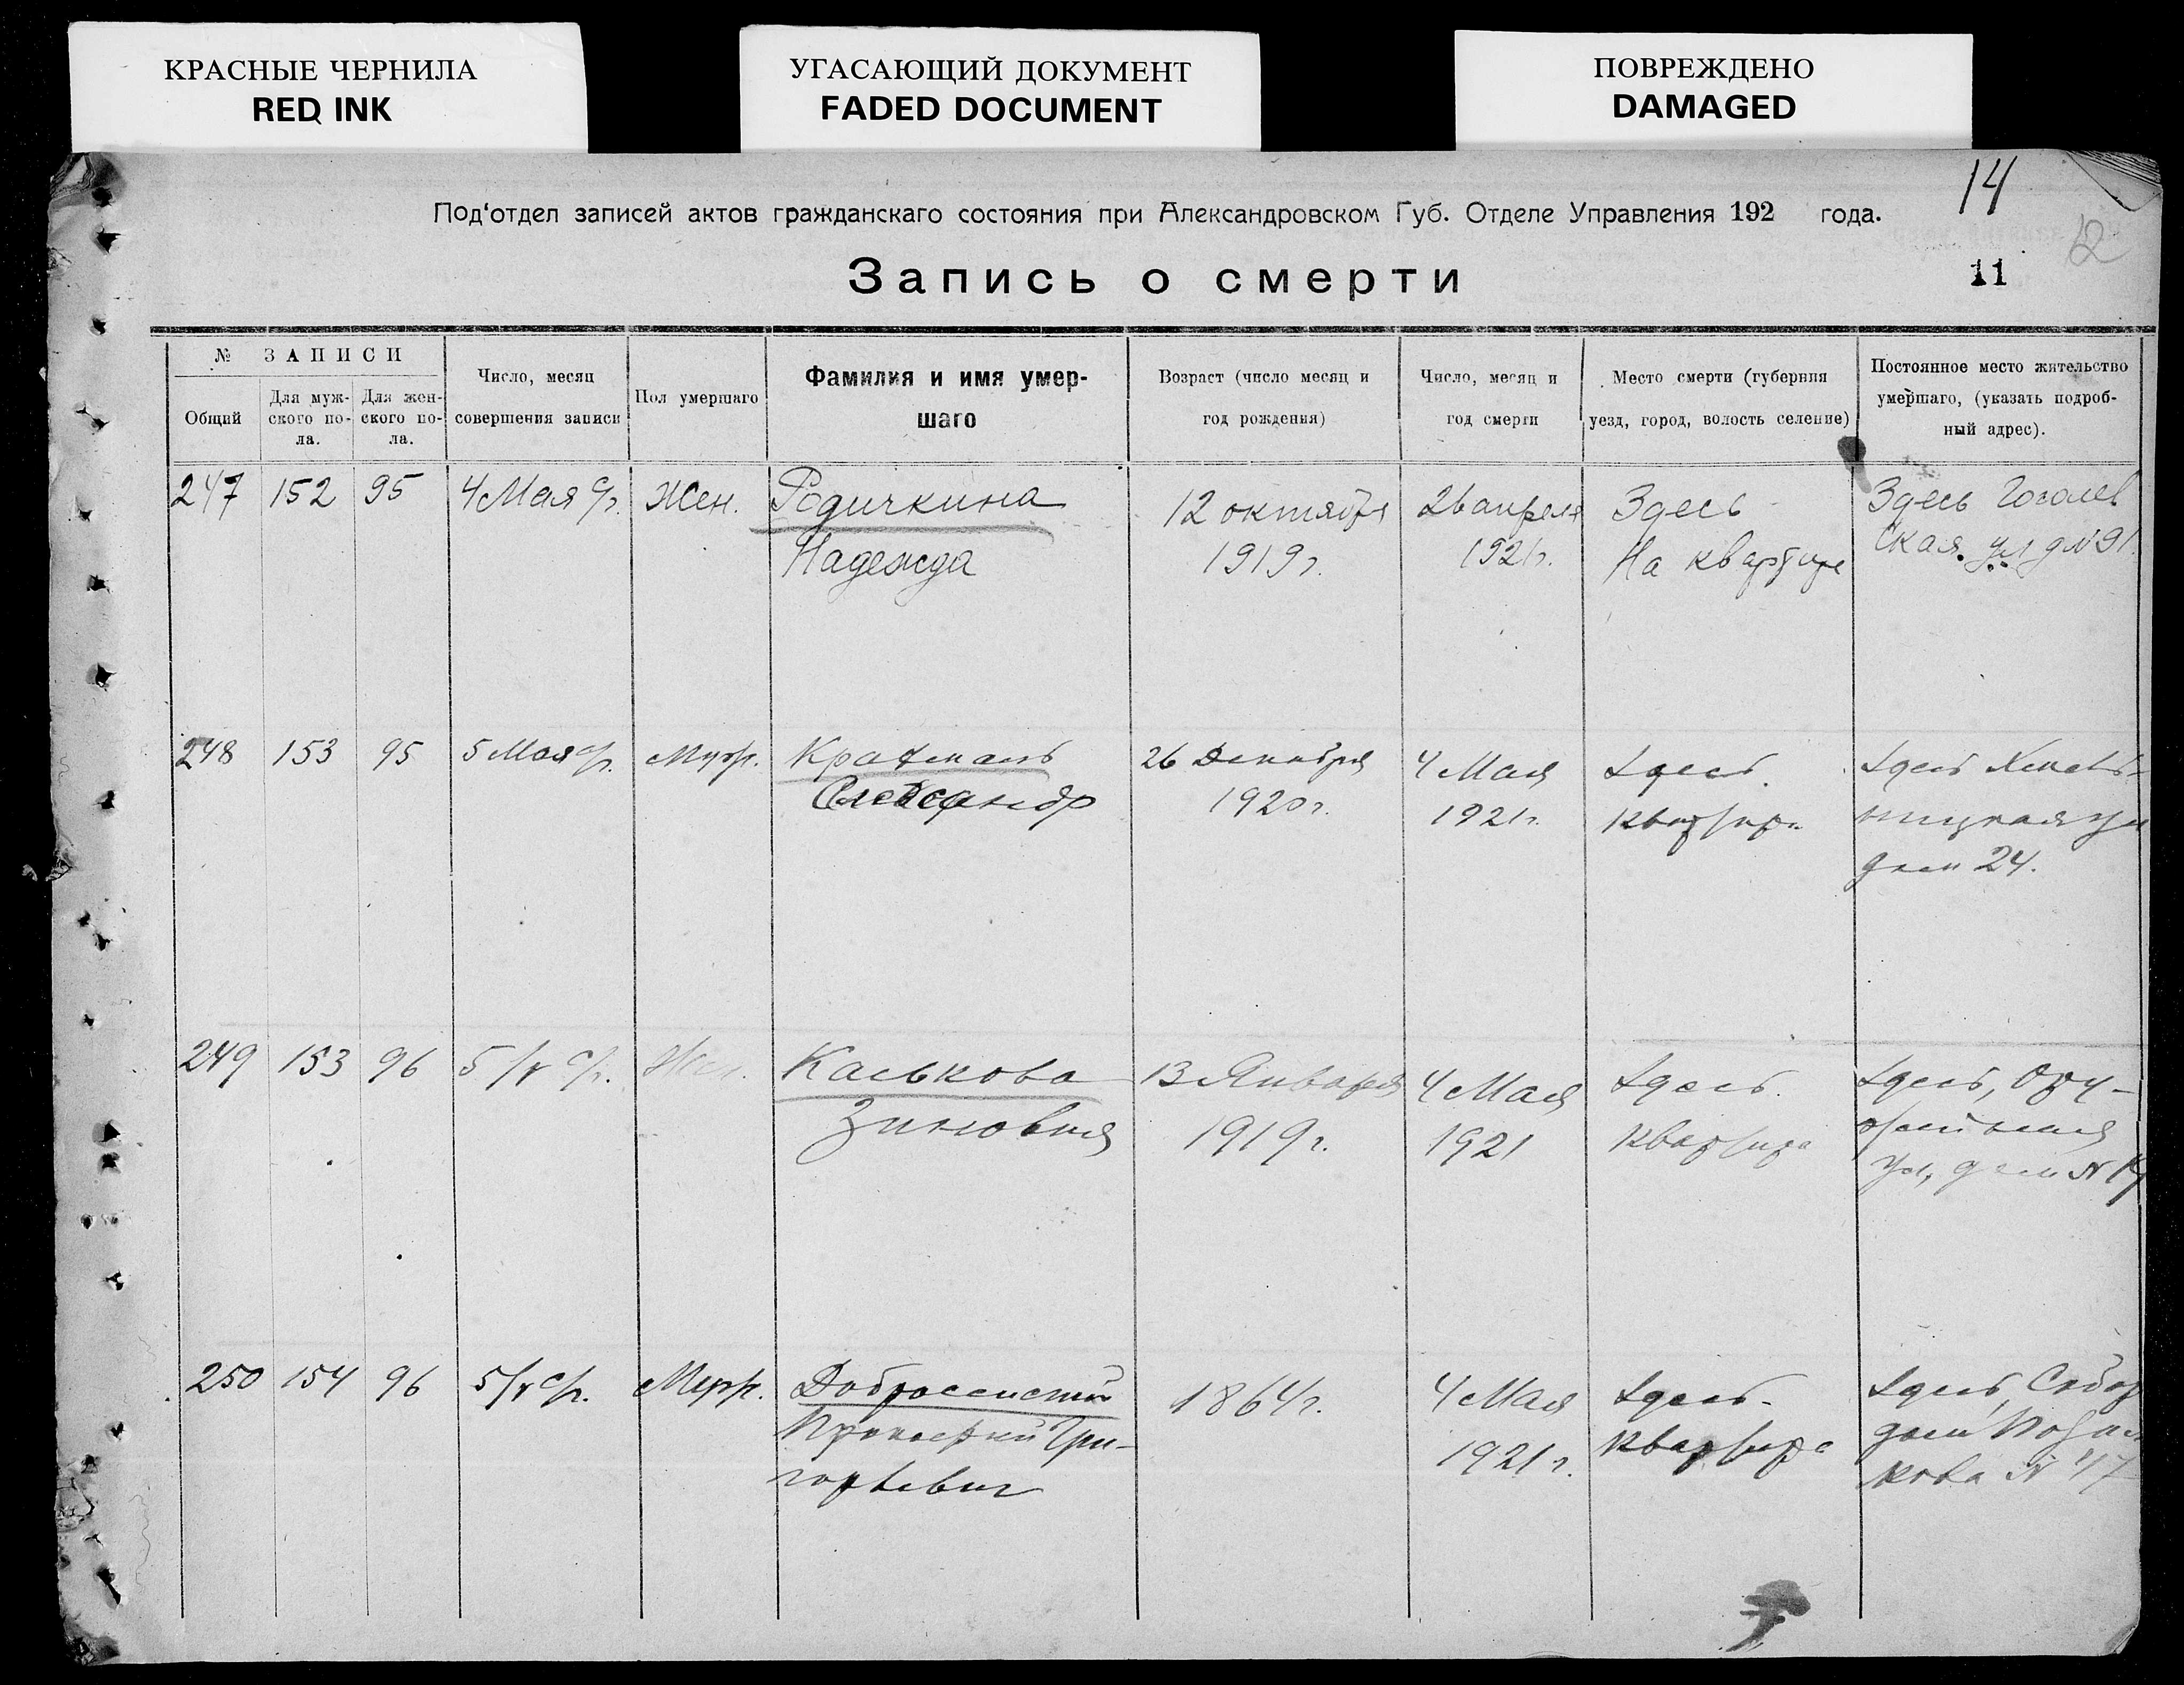 КРАСНЫЕ ЧЕРНИЛА
RED INK
УГАСАЮЩИЙ ДОКУМЕНТ
FADED DOCUMENT
ПОВРЕЖДЕНО
DAMAGED
14
Под'отдел записей актов гражданскаго состояния при Александровском Губ. Отделе Управления 192 года.
12
Запись о смерти
11
№ ЗАПИСИ
Общий
Для муж-
ского по-
ла.
Для жен-
ского по-
ла.
Число, месяц
совершения записи
Пол умершаго
Фамилия и имя умер-
шаго
Возраст (число месяц и
год рождения)
Число, месяц и
год смерти
Место смерти (губерния
уезд, город, волость селение)
Постоянное место жительство
умершаго, (указать подроб-
ный адрес).
247 152 95 4 Мая с/г. Жен.
Родичкина
Надежда
12 октября
1919 г.
26 апреля
1921 г.
Здесь
На квартире
Здесь Гоголев
ская ул д № 91
248 153 95 5 Мая с/г. Муж.
Крафмань
Александр
26 Декабря
1920 г.
4 Мая
1921 г.
Здесь.
квартира
Здесь
ницкая ул
дом 24.
249 153 96 5/V с/г. Жен.
Калькова
Зиновия
13 Января
1919 г.
4 Мая
1921
Здесь.
квартира
Здесь,
ул, дом №
250 154 96 5/V с/г. Муж.
Прокофий Гри-
горьевич
1864 г.
4 Мая
1921 г.
Здесь.
квартира
Здесь, Собор
дом
кова № 47